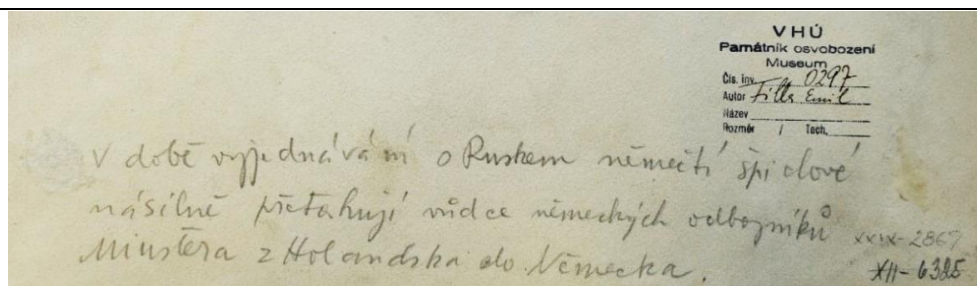 VHÚ
Památník osvobození
Museum
Čís. inv. 0297
Autor Filla Emil
Název
Rozměr / Tech.
V době vyjednávání o Ruskem němečtí špiclové
násilně přetahují vůdce německých odborníků
Münstera z Holandska do Německa.
XXIX-2867
XII-6325